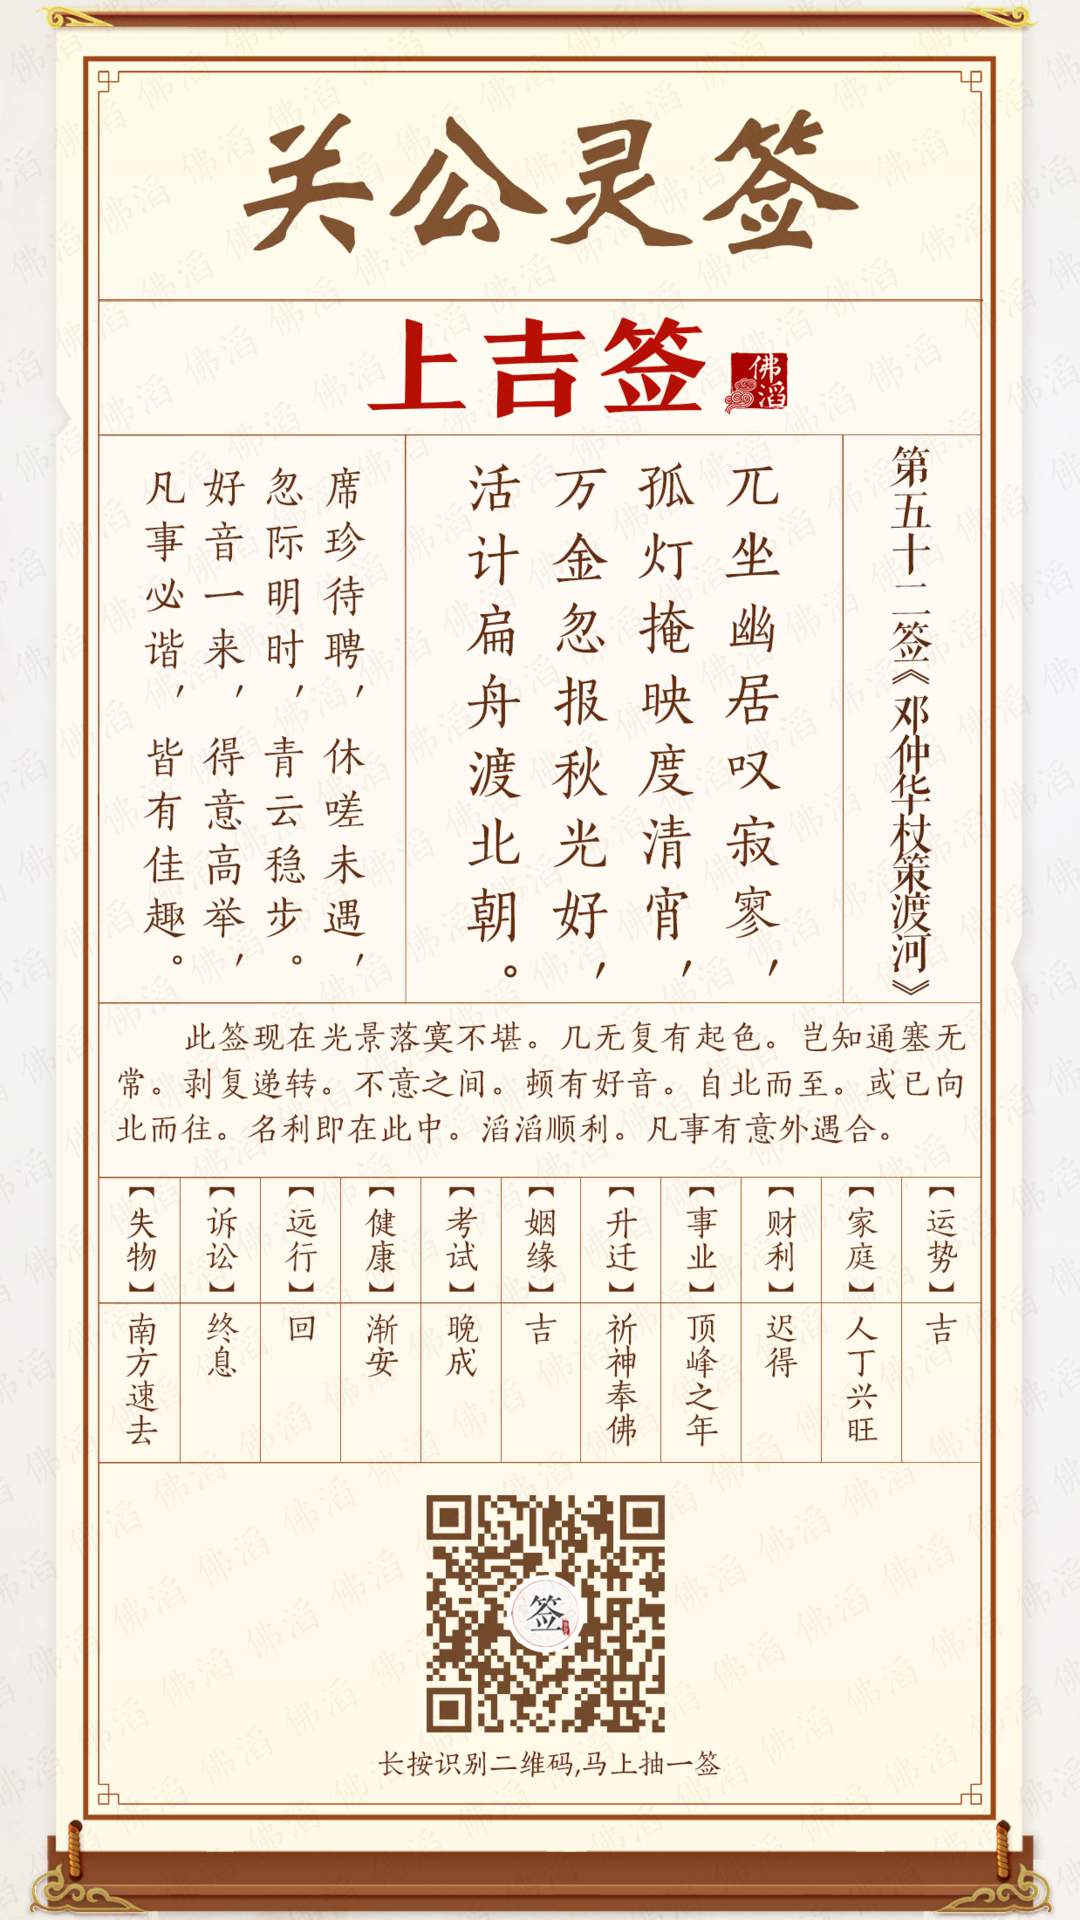 关公灵签
上吉签
佛滔
第五十二签《邓仲华杖策渡河》
兀坐幽居叹寂寥，
孤灯掩映度清宵，
万金忽报秋光好，
活计扁舟渡北朝。
席珍待聘，休嗟未遇，
忽际明时，青云稳步。
好音一来，得意高举，
凡事必谐，皆有佳趣。
此签现在光景落寞不堪。几无复有起色。岂知通塞无
常。剥复递转。不意之间。顿有好音。自北而至。或已向
北而往。名利即在此中。滔滔顺利。凡事有意外遇合。
【运势】
吉
【家庭】
人丁兴旺
【财利】
迟得
【事业】
顶峰之年
【升迁】
祈神奉佛
【姻缘】
吉
【考试】
晚成
【健康】
渐安
【远行】
回
【诉讼】
终息
【失物】
南方速去
签
长按识别二维码,马上抽一签